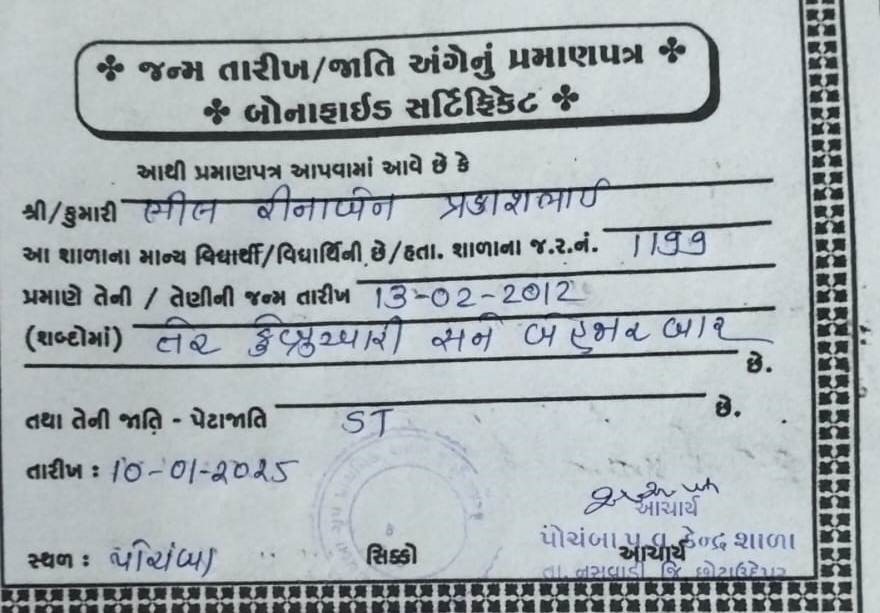 જન્મ તારીખ/જાતિ અંગેનું પ્રમાણપત્ર
બોનાફાઈડ સર્ટિફિકેટ
આથી પ્રમાણપત્ર આપવામાં આવે છે કે
શ્રી/કુમારી ભીલ રીનાબેન પ્રકાશભાઈ
આ શાળાના માન્ય વિદ્યાર્થી/વિદ્યાર્થિની છે/હતા. શાળાના જ.ર.નં. 1199
પ્રમાણે તેની / તેણીની જન્મ તારીખ 13-02-2012
(શબ્દોમાં) તેર ફેબ્રુઆરી સને બે હજાર બાર
છે.
તથા તેની જાતિ - પેટાજાતિ ST છે.
તારીખ : 10-01-2025
આચાર્ય
પોચંબા પ.વ.કેન્દ્ર શાળા
સ્થળ : પોચંબા સિક્કો આચાર્ય
તા. નસવાડી જિ. છોટાઉદેપુર